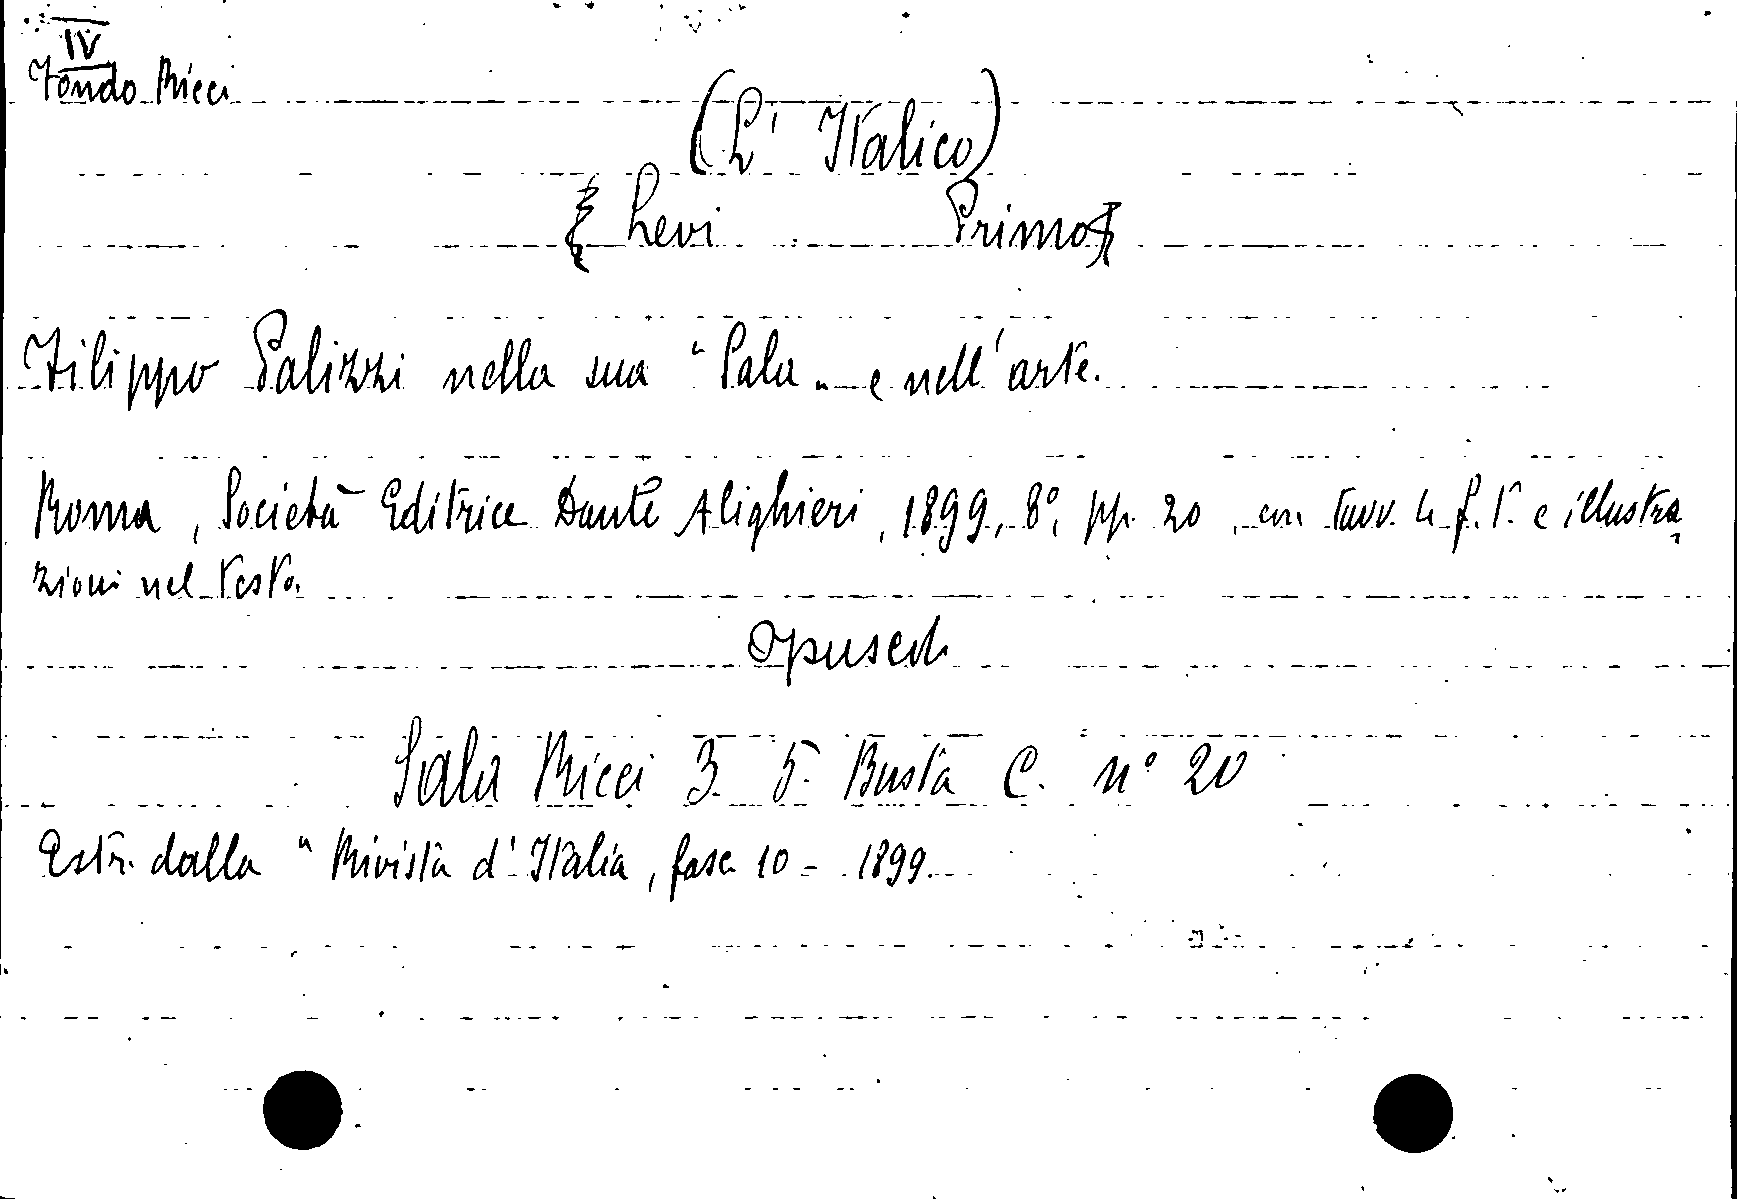 IV
Fondo Ricci
(L' Italico)
Levi Primo
Filippo Palizzi nella sua "Sala„ e nell'arte.
Roma, Società Editrice Dante Alighieri, 1899, 8°, pp. 20, con tavv. 4 f. t. e illustra,
zioni nel testo.
Opusch
Sala Ricci 3. 5. Busta C. n° 20
Estr. dalla "Rivista d'Italia, fasc 10 - 1899.